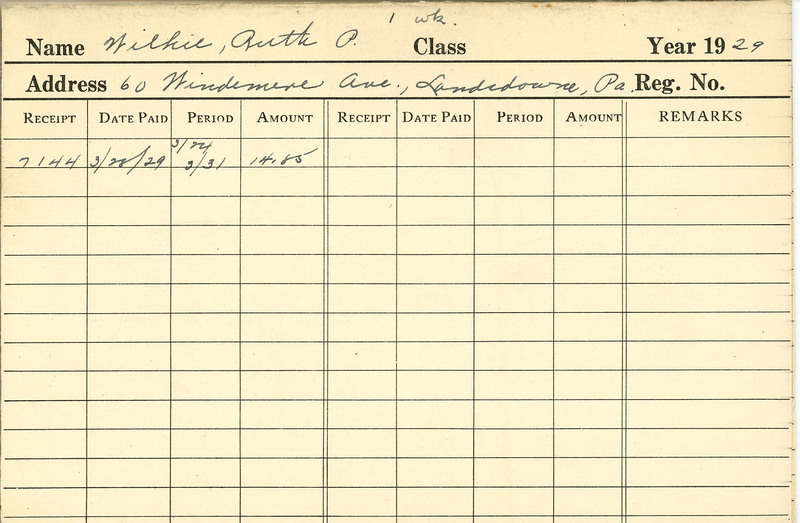 1 wk.
Name Wilkie, Ruth P. Class Year 1929
Address 60 Windemere Ave., Landsdowne, Pa. Reg. No.
RECEIPT DATE PAID PERIOD AMOUNT RECEIPT DATE PAID PERIOD AMOUNT REMARKS
3/24
7144 3/28/29 3/31 14.85